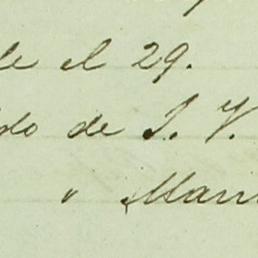 de el 29.
do de S. V.
" Man